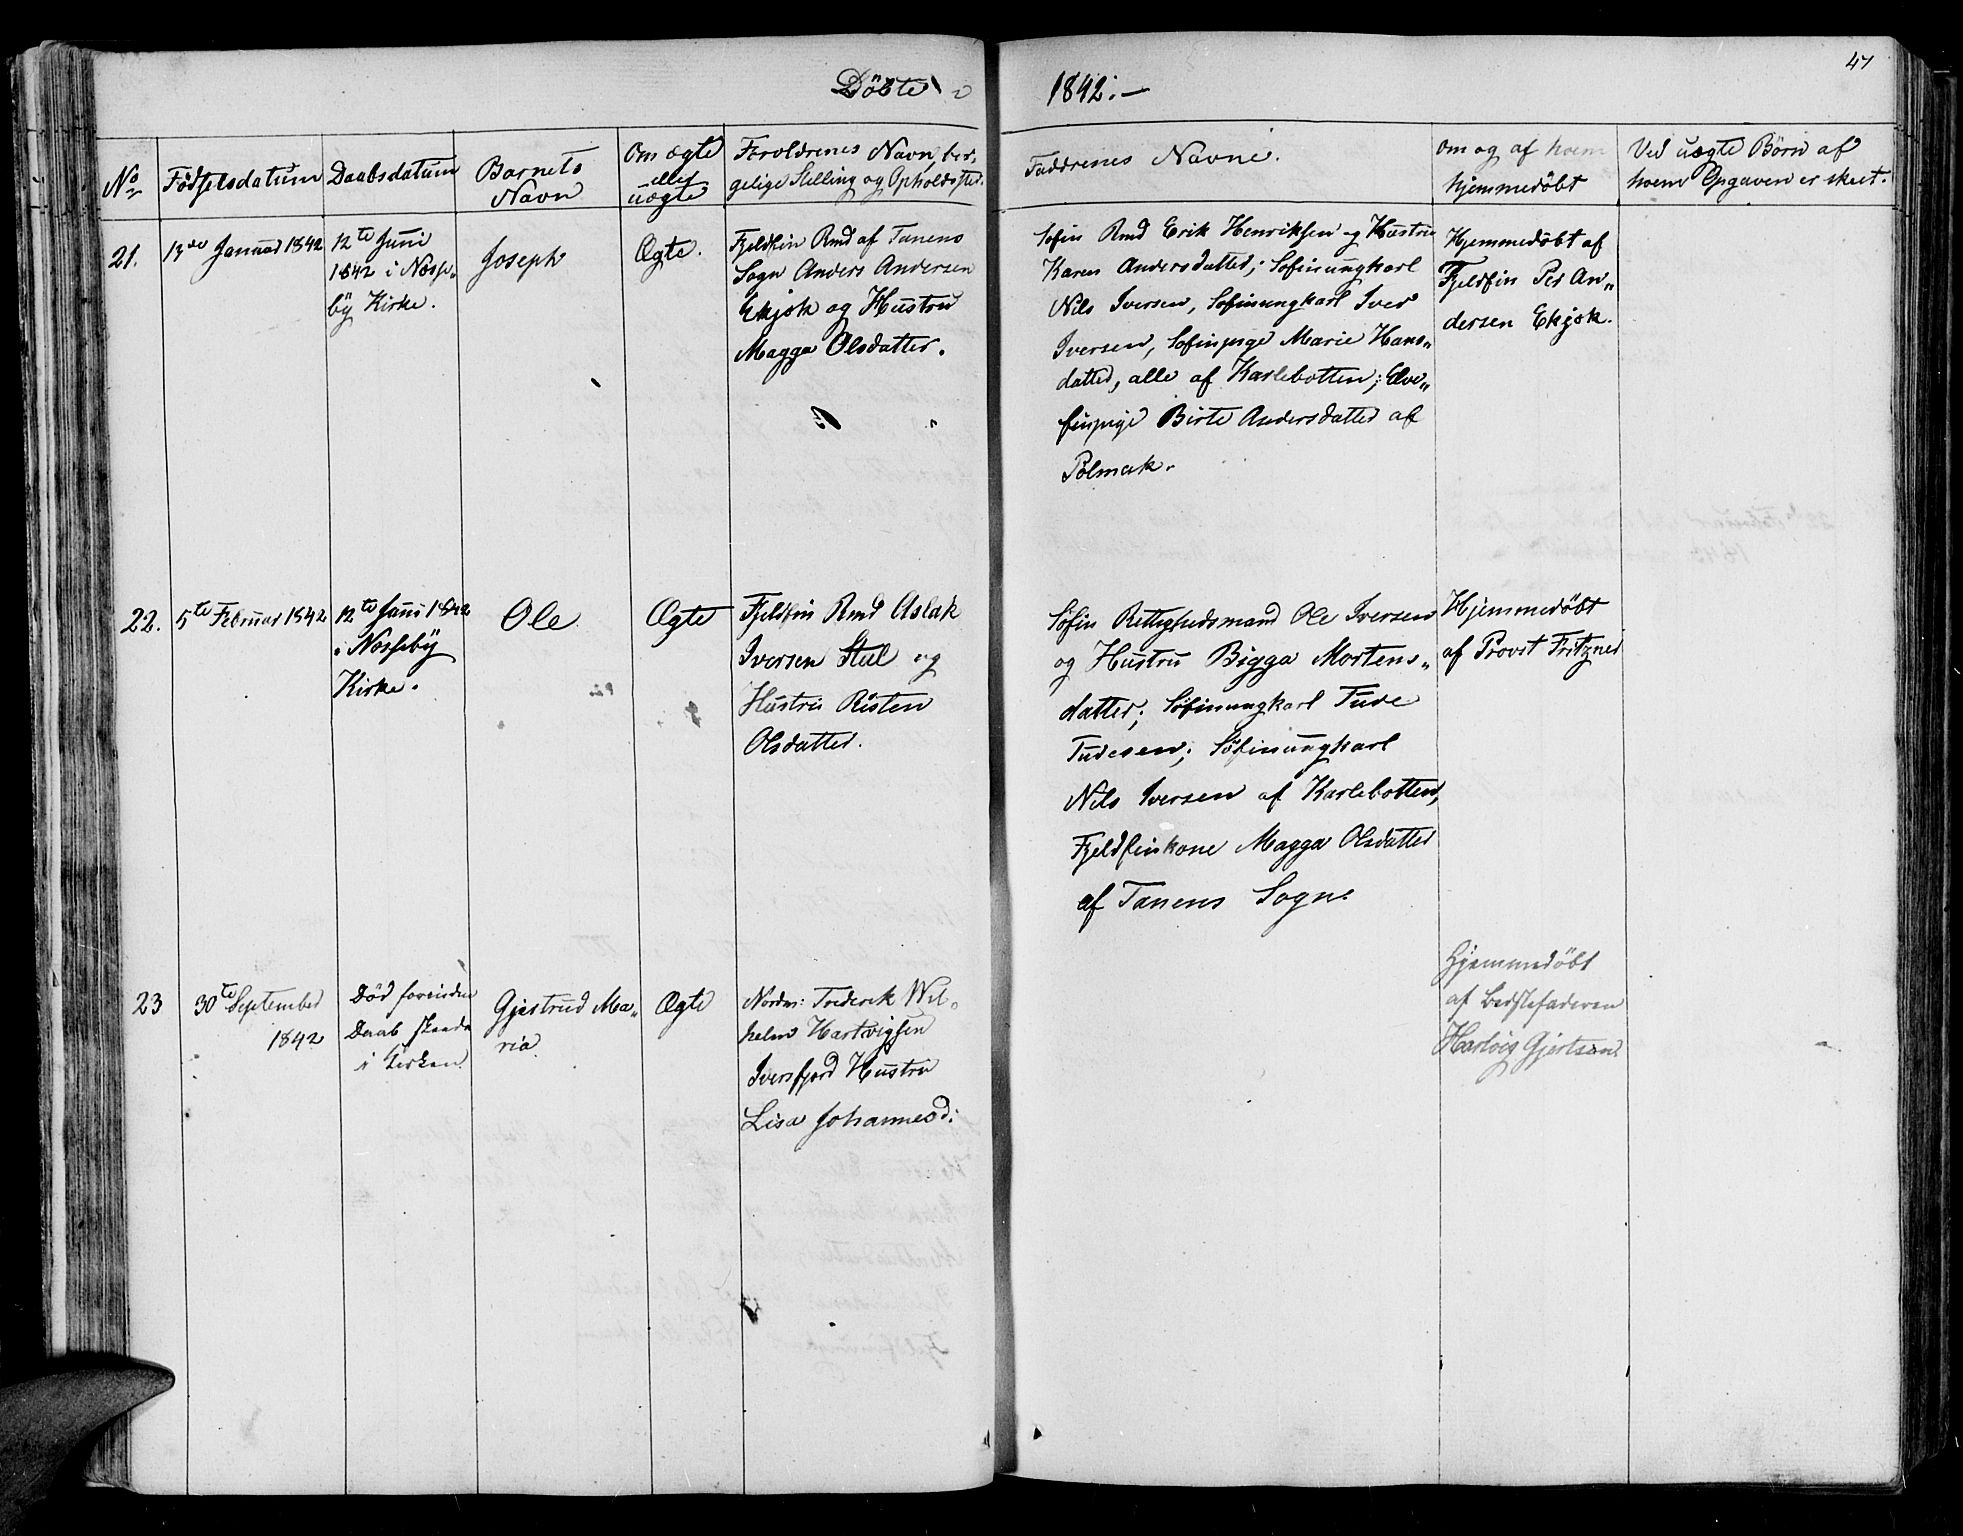 47
Döbte i 1842.—
No
Födselsdatum
Daabsdatum
Barnets
Navn
Om ægte
eller
uægte
Forældrenes Navn, bor-
gelige Stilling og Opholdssted.
Faddrenes Navne.
om og af hvem
hjemmedöbt
Ved uægte Börn af
hvem Opgaven er skeet.
21.
13de Januar 1842
12te Juni
1842 i Næsse-
bÿ Kirke.
Joseph
Ægte.
Fjeldfin Rmd af Tanens
Sogn Anders Andersen
Ekjok og Hustru
Magga Olsdatter.
Søfin Rmd Erik Henriksen og Hustru
Karen Andersdatter; Søfinungkarl
Nils Iversen, Søfinungkarl Iver
Iversen, Søfinpige Marie Hans„
datter, alle af Karlebotten; Elve„
finpige Birte Andersdatter af
Polmak.
Hjemmedöbt af
Fjeldfin Per An„
dersen Ekjok.
22.
5te Februar 1842
12te Juni 1842
i Næssebÿ
Kirke.
Ole
Ægte
Fjeldfin Rmd Aslak
Iversen Stul og
Hustru Risten
Olsdatter.
Søfin Rettighedsmand Ole Iversen
og Hustru Bigga Mortens„
datter; Søfinungkarl Tude
Tudesen; Söfinungkarl
Nils Iversen af Karlebotten,
Fjeldfinkone Magga Olsdatter
af Tanens Sogn.
Hjemmedöbt
af Provst Fritzner
23
30te September
1842
Död forinden
Daab skeede
i Kirken.
Gjertrud Ma„
ria.
Ægte
Nordm: Frederik Wil-
helm Hartvigsen
Iversfjord Hustru
Lisa Johannesd:
Hjemmedöbt
af Bedstefaderen
Hartvig Gjertsen.